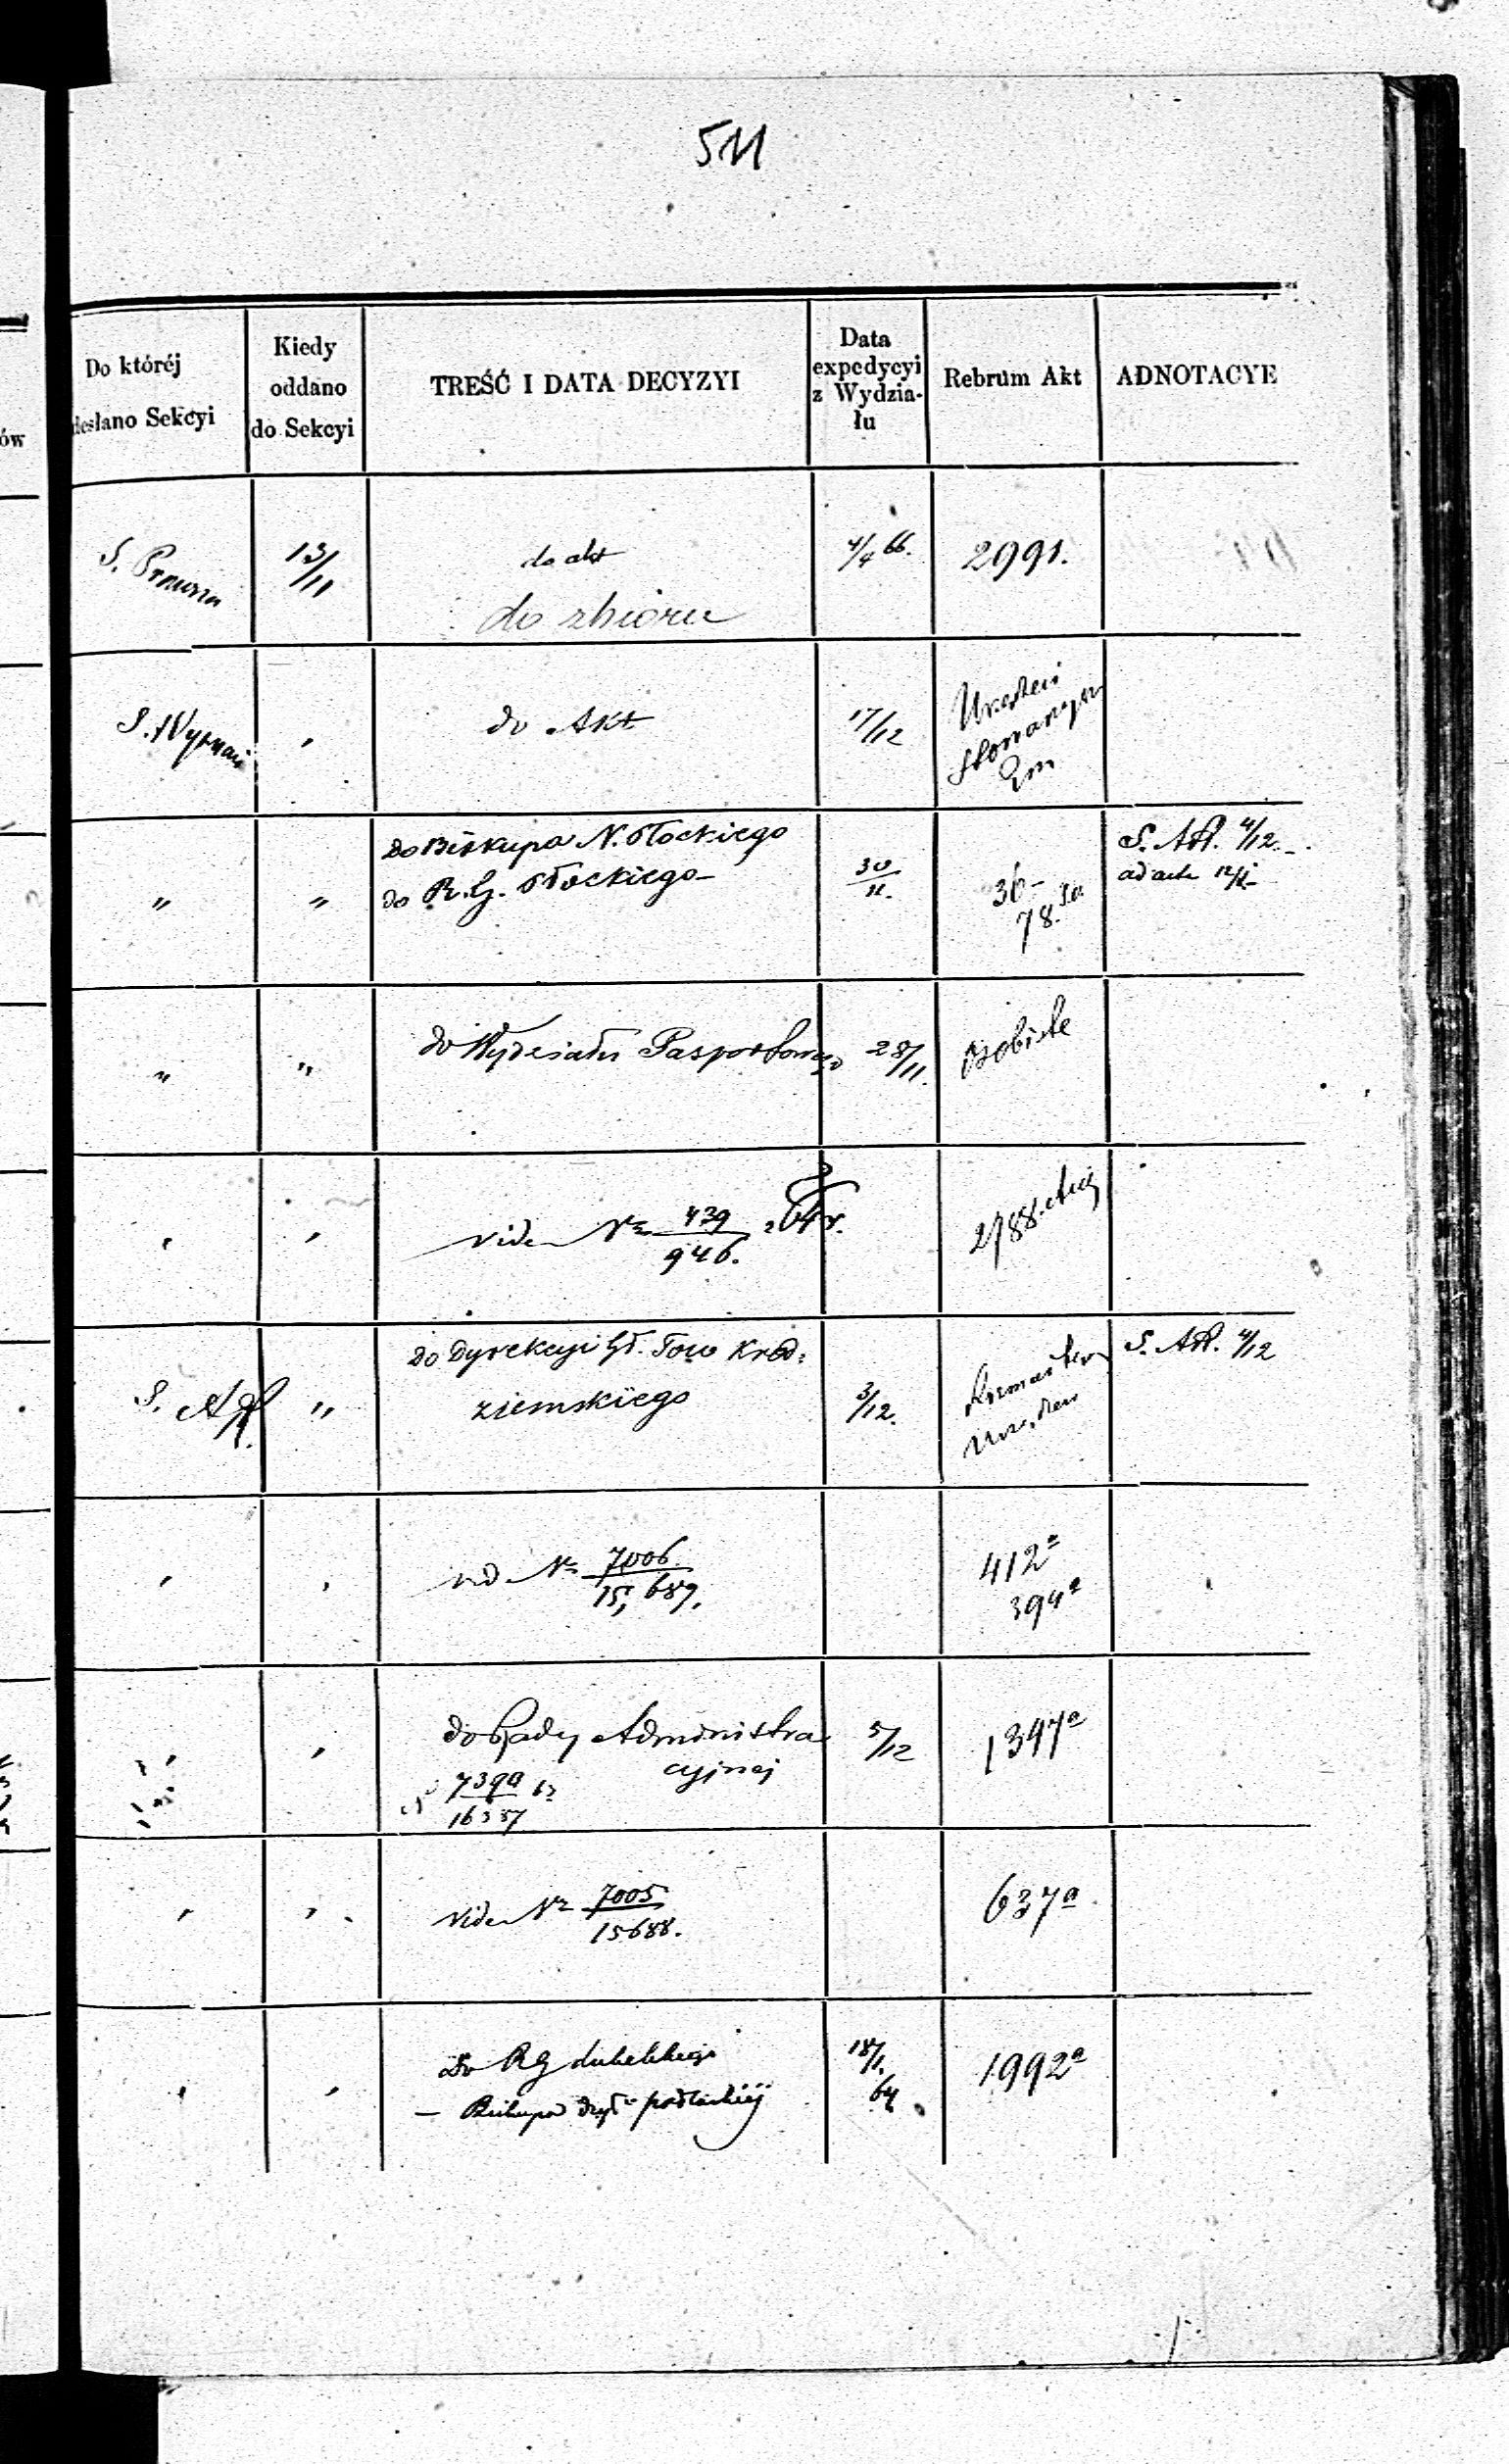 511
Do któréj
desłano Sekcyi
Kiedy
oddano
do Sekcyi
TREŚĆ I DATA DECYZYI
Data
expedycyi
z Wydzia-
łu
Rebrum Akt
ADNOTACYE
ów
S.
13/11
do akt
do zbioru
4/4 66.
2991.
S. Wyznań
"
do Akt
17/12
"
"
do Biskupa N. Płockiego
do R. G. Płockiego
30/11.
36
78.
S. AR. 4/12.
ad acta
"
"
do Wydziału Pasportowego
28/11.
osobiste
"
"
vide N° 439/946. 64 r.
2788.
S. AR.
"
do Dyrekcyi Gł. Tow Kred:
ziemskiego
3/12.
S. AR. 4/12
"
"
vid N° 7006/15,689.
412a
394a
"
"
do Rady Administra
cyjnej
7390/16357
5/12
1397a
"
"
vide N° 7005/15688.
637a
"
"
Do RG Lubelskiego
— Biskupa Dyec podlaskiej
18/1.
64
1992a